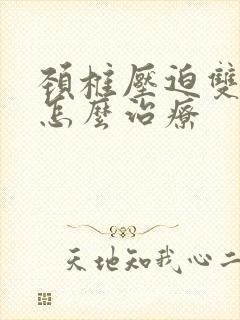 頸椎壓迫雙
怎麼治療
天地知我心二